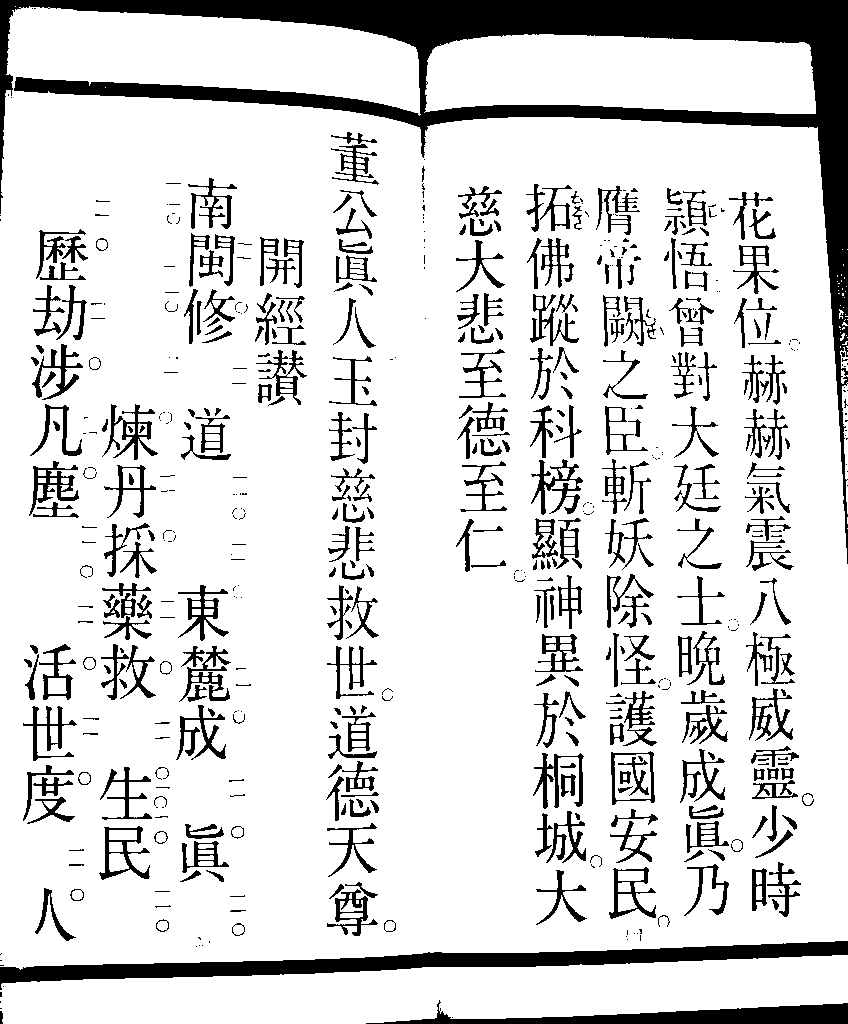 花果位。赫赫氣震八極威靈。少時
穎悟曾對大廷之士。晩歲成眞。乃
膺帝闕之臣。斬妖除怪。護國安民。
拓佛蹤於科榜。顯神異於桐城。大
慈大悲至德至仁。
董公眞人玉封慈悲救世。道德天尊。
開經讃
南閩修 道 東麓成 眞
煉丹採藥救 生民
歷劫涉凡塵 活世度 人